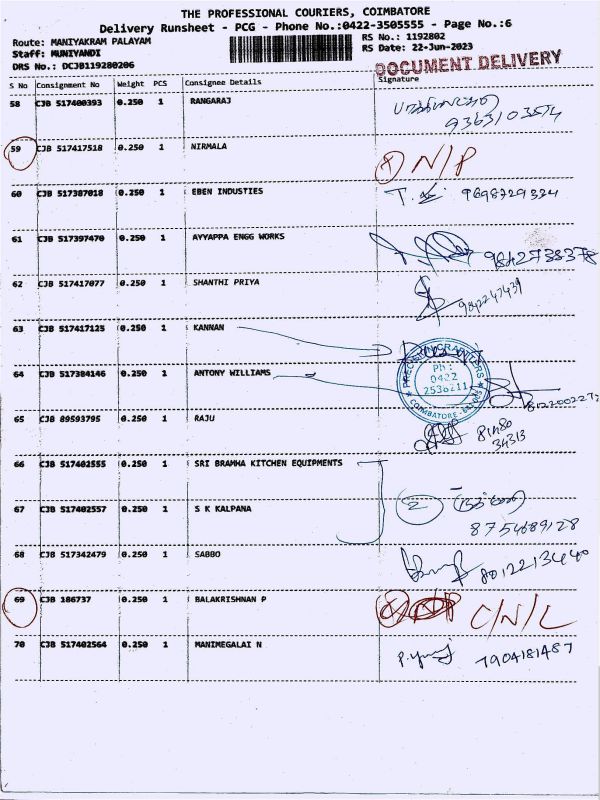 THE PROFESSIONAL COURIERS, COIMBATORE
Delivery Runsheet - PCG - Phone No.:0422-3505555 - Page No.:6
Route: MANIYAKRAM PALAYAM
RS No.: 1192802
Staff: MUNIYANDI
RS Date: 22-Jun-2023
DRS No.: DCJB119280206
DOCUMENT DELIVERY
S No Consignment No Weight PCS Consignee Details Signature
58 CJB 517400393 0.250 1 RANGARAJ
9363103574
59 CJB 517417518 0.250 1 NIRMALA N/P
60 CJB 517387018 0.250 1 EBEN INDUSTIES 9698729324
61 CJB 517397470 0.250 1 AYYAPPA ENGG WORKS
9842738378
62 CJB 517417077 0.250 1 SHANTHI PRIYA
9842247439
63 CJB 517417125 0.250 1 KANNAN
PRECISION GRANITERS
Ph:
0422
2536211
64 CJB 517384146 0.250 1 ANTONY WILLIAMS
65 CJB 89593795 0.250 1 RAJU
81480
34313
66 CJB 517402555 0.250 1 SRI BRAMHA KITCHEN EQUIPMENTS
67 CJB 517402557 0.250 1 S K KALPANA 2
8754689128
68 CJB 517342479 0.250 1 SABBO
8012213440
69 CJB 186737 0.250 1 BALAKRISHNAN P C/N/L
70 CJB 517402564 0.250 1 MANIMEGALAI N 7904181487